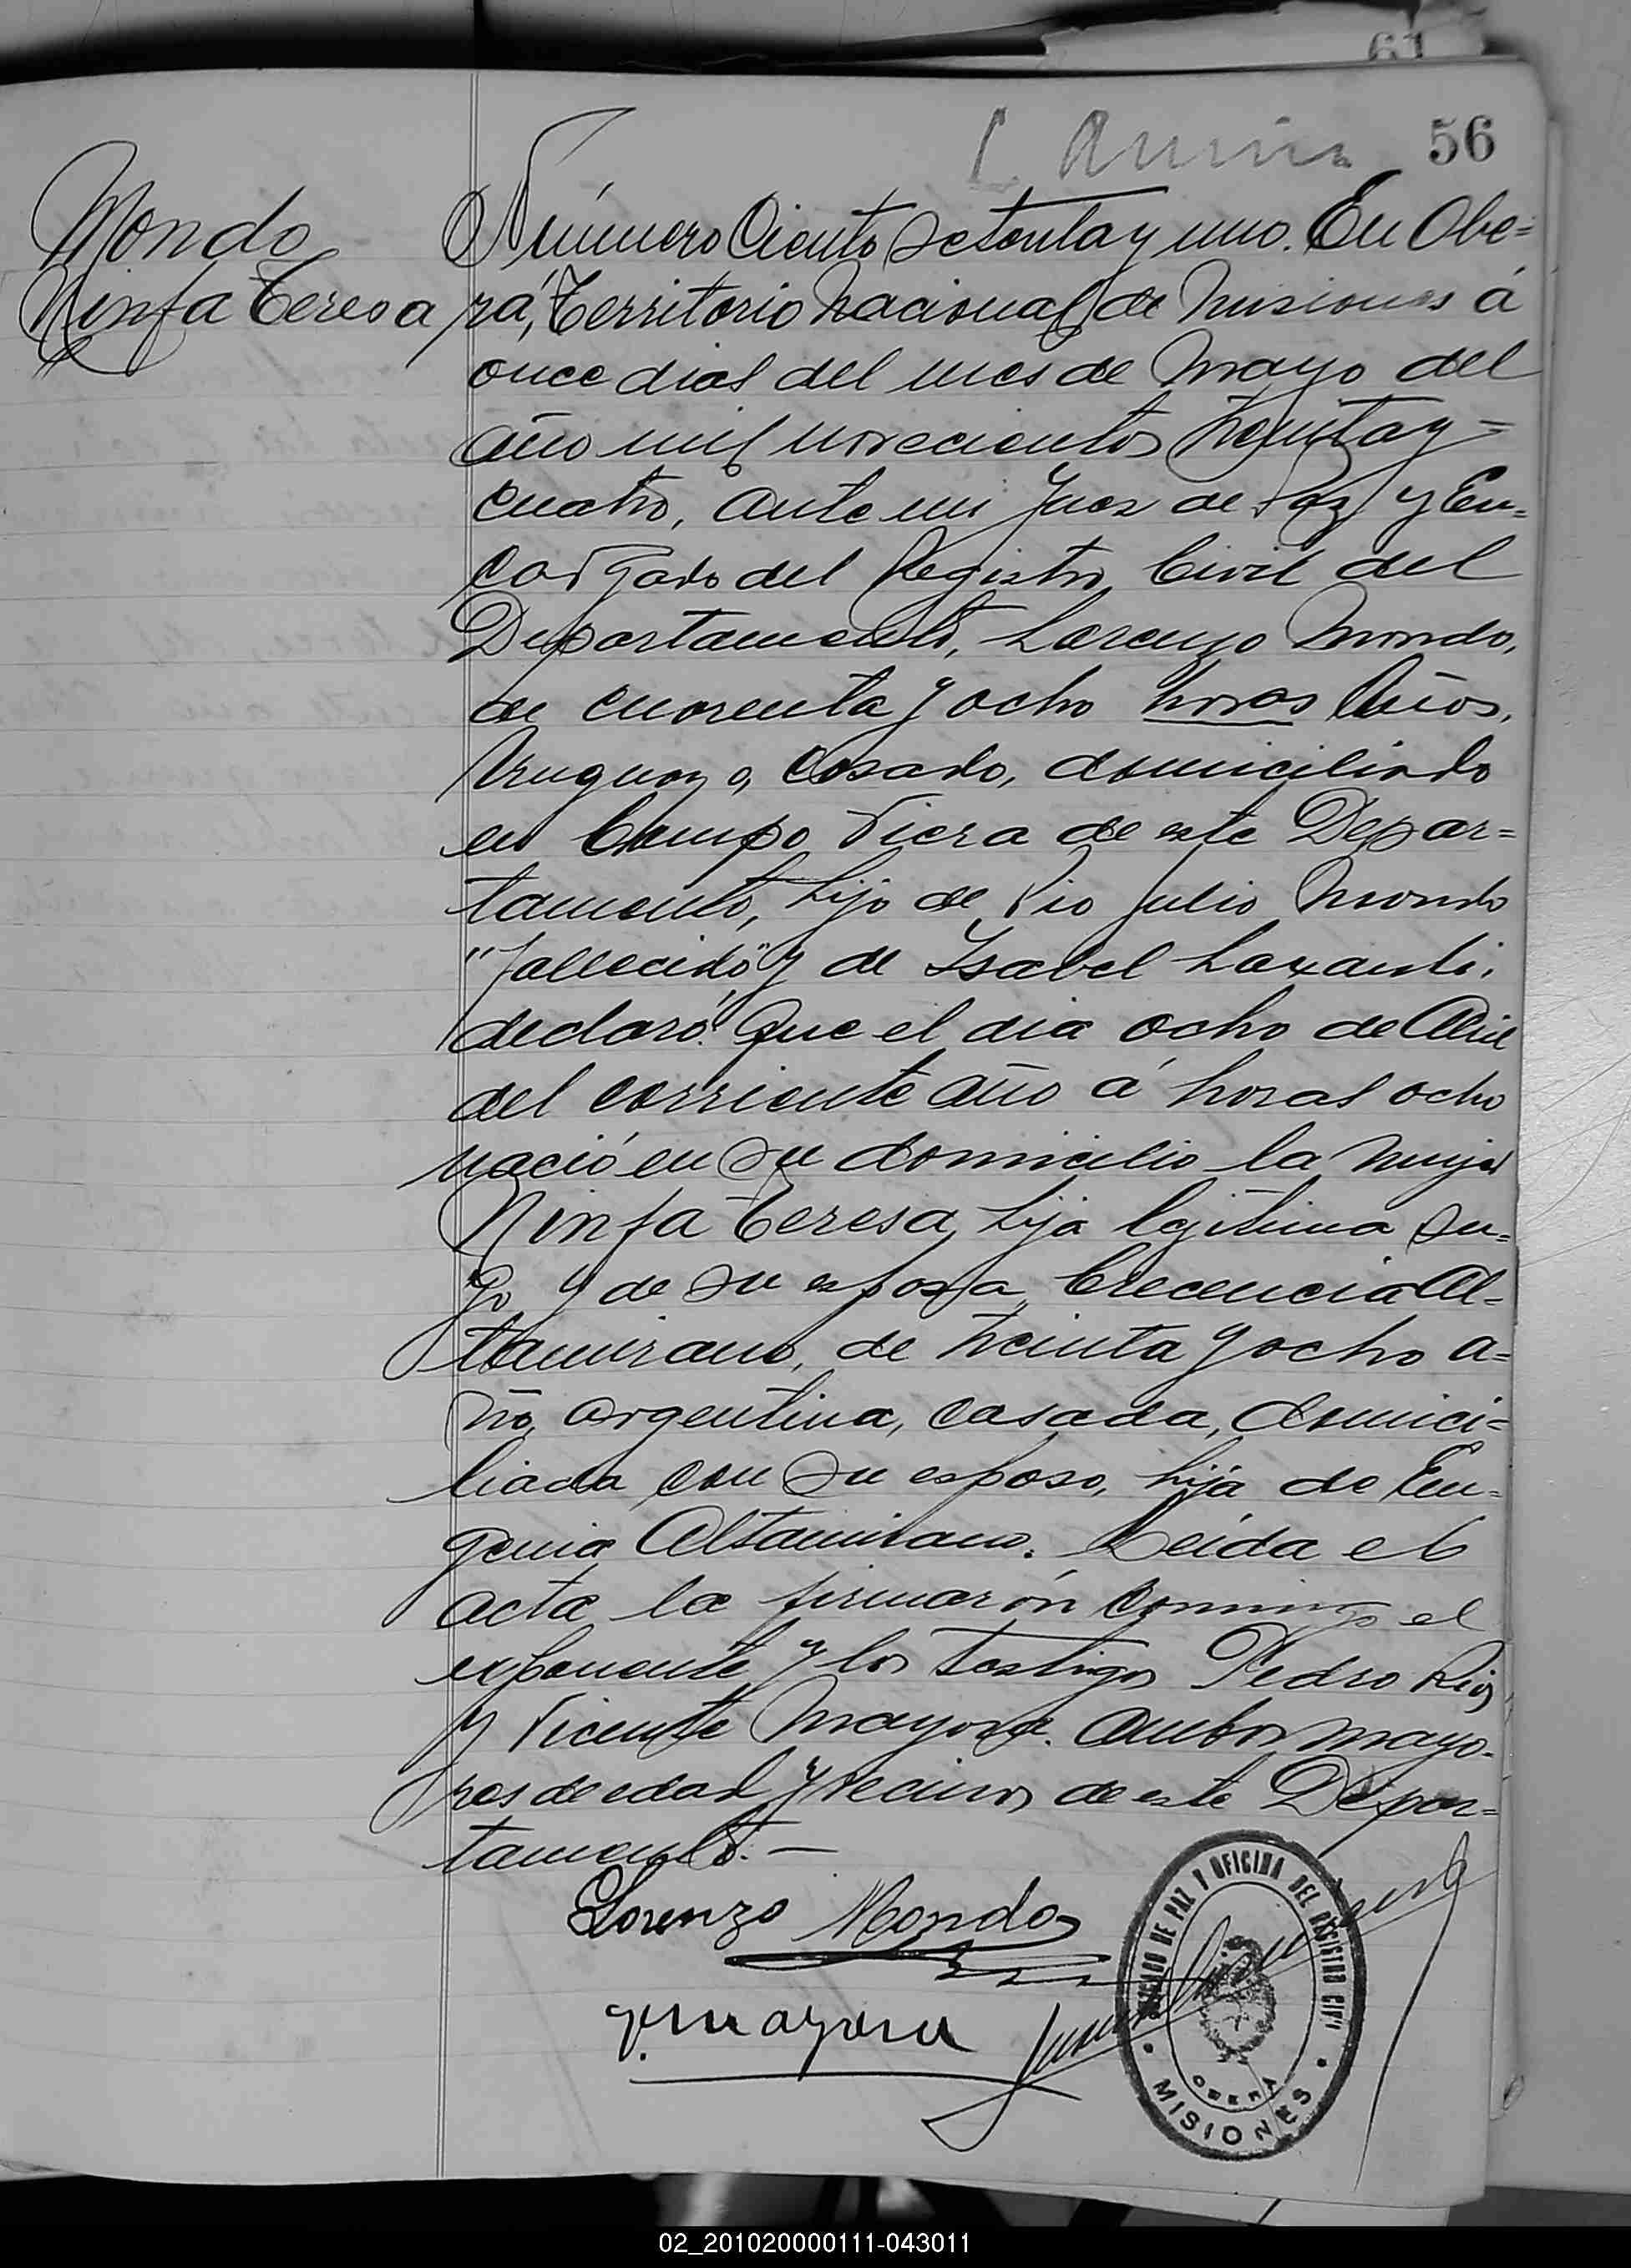 61
56
Mondo
Ninfa Teresa
Número Ciento Setenta y uno. En Obe=
rá, Territorio Nacional de Misiones á
once dias del mes de Mayo del
año mil novecientos treinta y=
cuatro, ante mi Juez de Paz y En=
cargado del Registro Civil del
Departamento, Lorenzo Mondo,
de cuarenta y ocho horas Años,
Uruguayo, Casado, domiciliado
en Campo Viera de este Depar=
tamento, hijo de Pio Julio Mondo
"fallecido" y de Isabel
declaró: Que el dia ocho de Abril
del corriente año á horas ocho
nació en su domicilio la mujer
Ninfa Teresa, hija legitima su=
ya y de su esposa Crecencia Al=
tamirano, de treinta y ocho a=
ño, argentina, casada, domici=
liada con su esposo, hija de Eu=
genia Altamirano. Leida el
acta la firmarón conmigo el
exponente y los testigos Pedro Rios
y Vicente Mayora. Ambos mayo=
res de edad y vecinos de este Depar=
tamento.—
Lorenzo Mondo
V. Mayora
JUZGADO DE PAZ Y OFICINA DEL REGISTRO CIVIL
OBERA
MISIONES
02_201020000111-043011